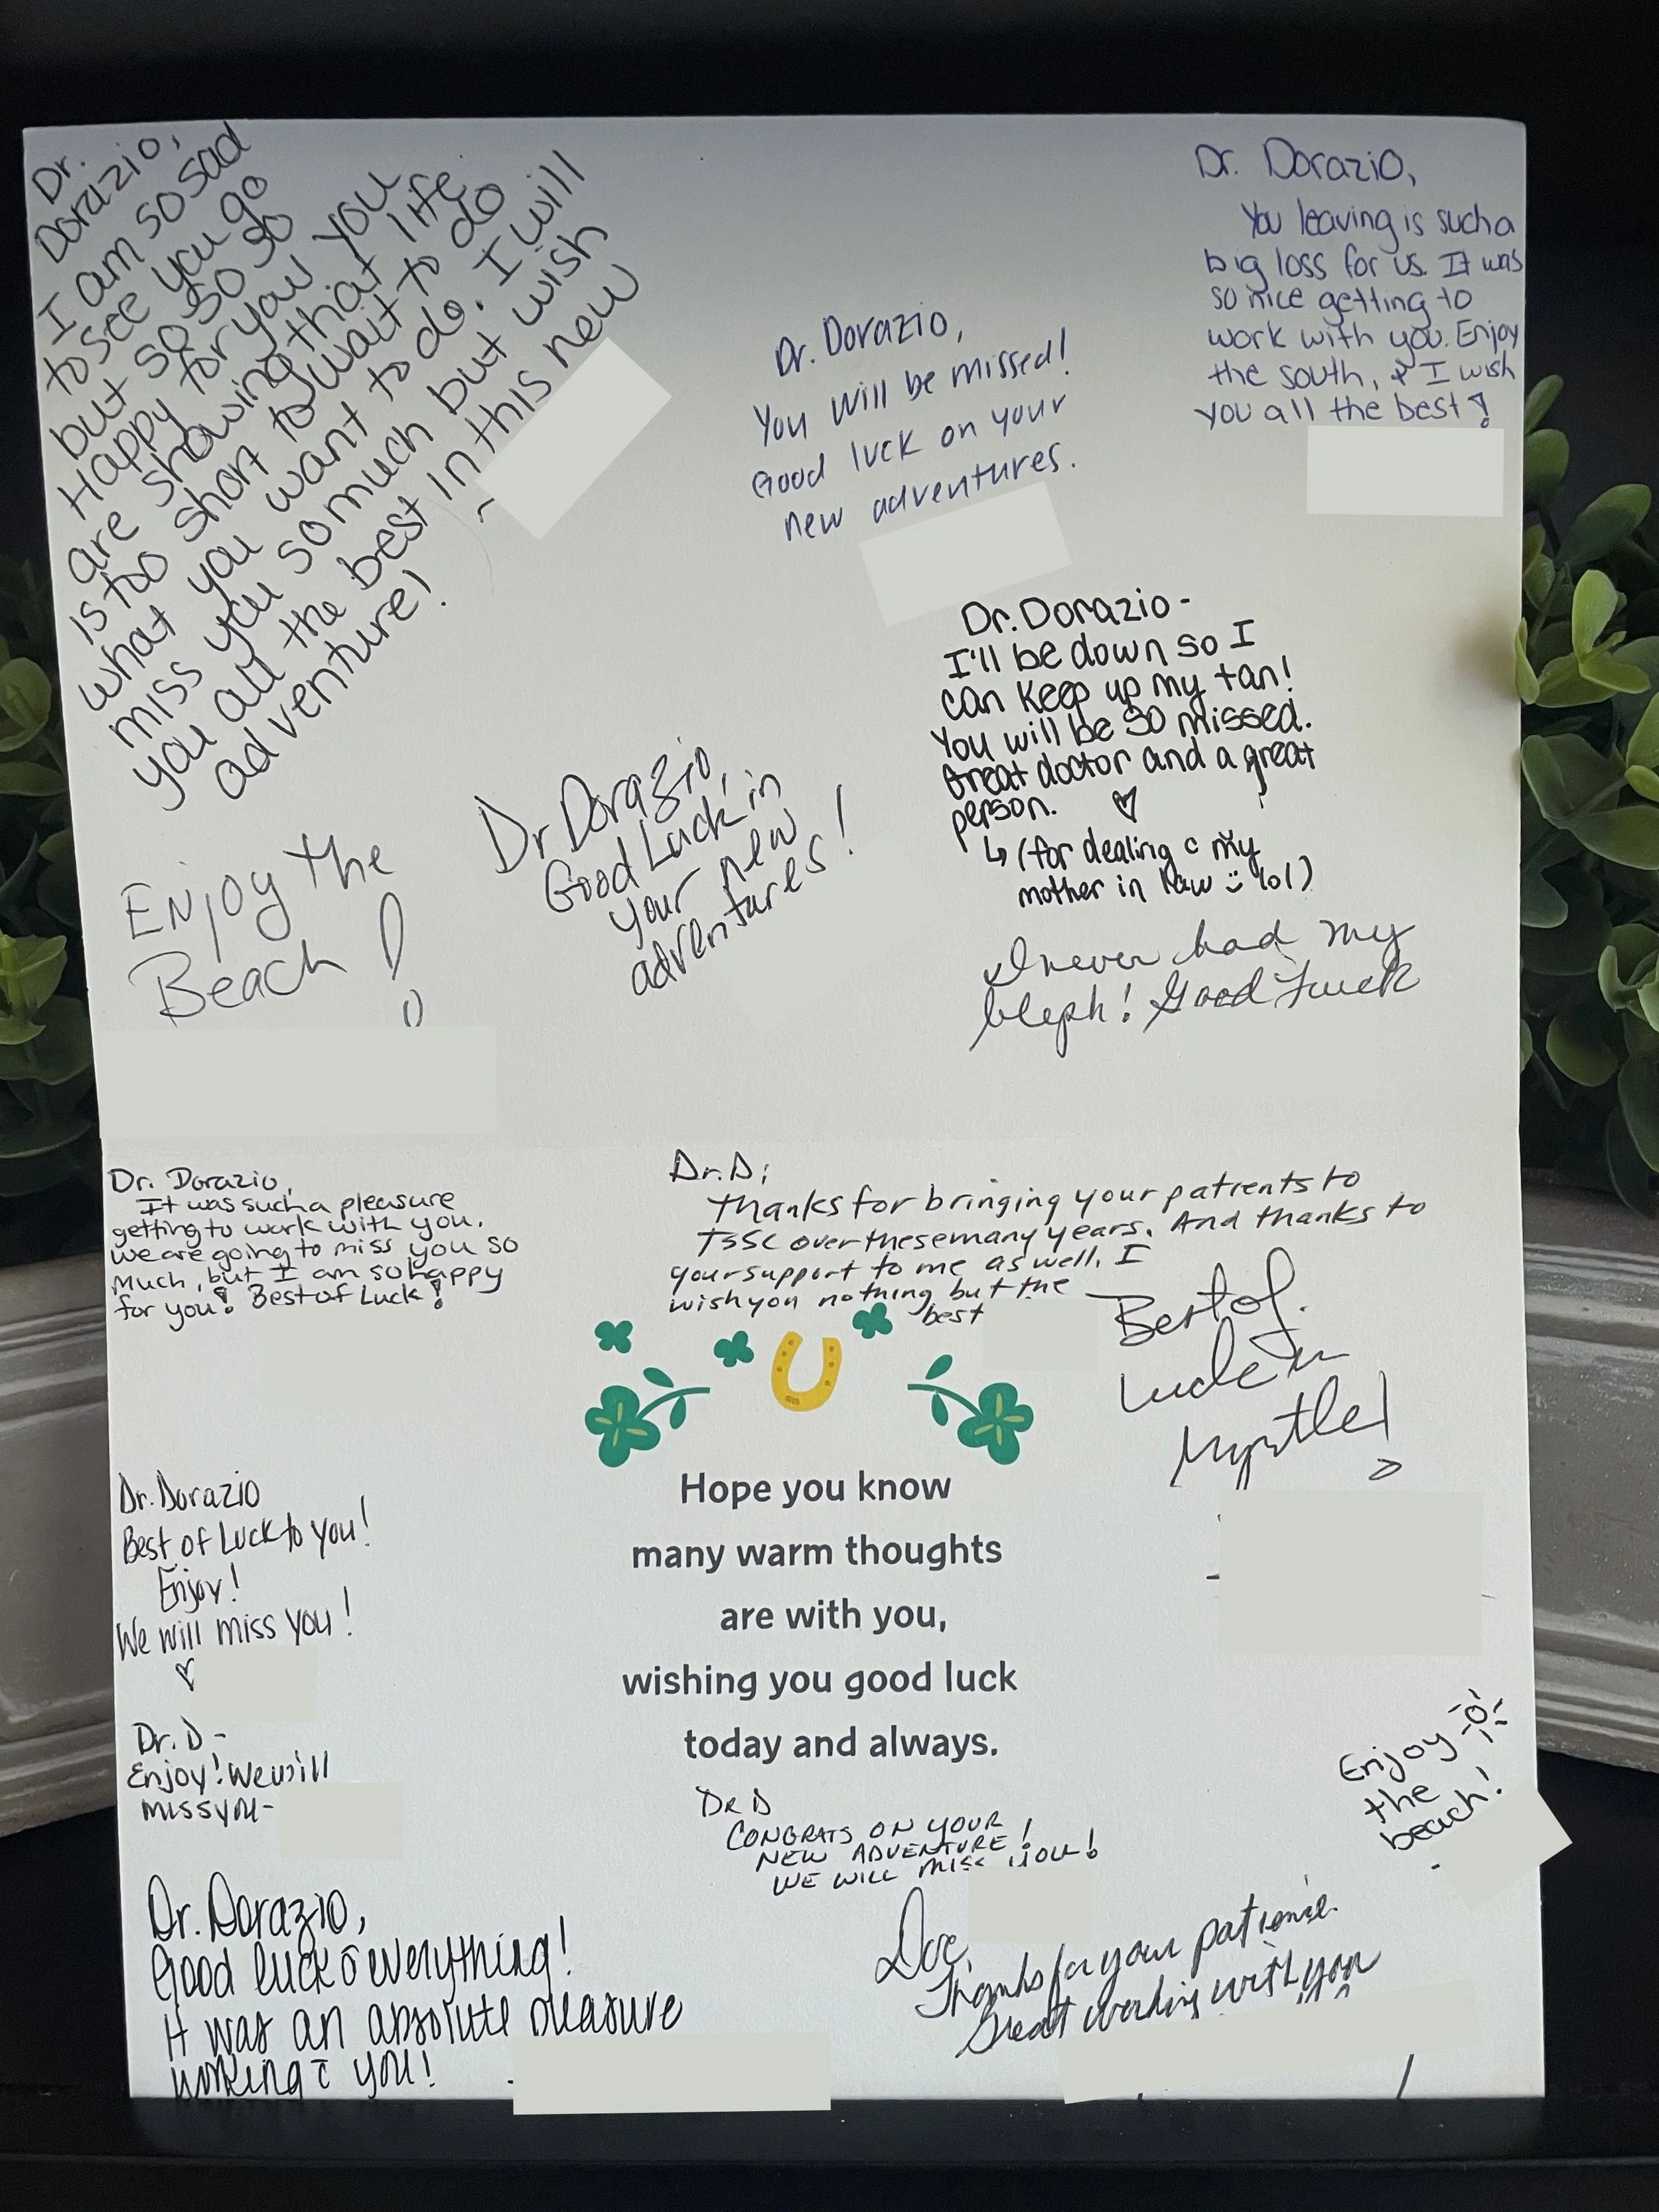 Dr.
Dorazio,
I am so sad
to see you go
but so so so
Happy for you you
are showing that life
is too short to wait to do
what you want to do. I will
miss you so much but wish
you all the best in this new
adventure!
Dr. Dorazio,
You will be missed!
Good luck on your
new adventures.
Dr. Dorazio,
You leaving is such a
big loss for us. It was
so nice getting to
work with you. Enjoy
the south, & I wish
you all the best!
Dr. Dorazio-
I'll be down so I
can keep up my tan!
You will be SO missed.
Great doctor and a great
person. ♡
↳ (for dealing c̄ my
mother in law :) lol)
Enjoy the
Beach!
Dr Dorazio,
Good Luck in
your new
adventures!
I never had my
bleph! Good Luck
Dr. Dorazio,
It was such a pleasure
getting to work with you.
we are going to miss you so
much, but I am so happy
for you! Best of Luck!
Dr. D;
Thanks for bringing your patients to
TSSC over these many years. And thanks to
your support to me as well. I
wish you nothing but the
best
Best of
Luck in
Myrtle!
Hope you know
many warm thoughts
are with you,
wishing you good luck
today and always.
Dr. Dorazio
Best of Luck to you!
Enjoy!
We will miss you!
♡
Dr. D -
Enjoy! We will
miss you-
Dr. Dorazio,
Good luck c̄ everything!
It was an absolute pleasure
working c̄ you!
DR D
CONGRATS ON YOUR
NEW ADVENTURE!
WE WILL MISS YOU!
Enjoy
the
beach!
Doc,
Thanks for your patience.
Great working with you